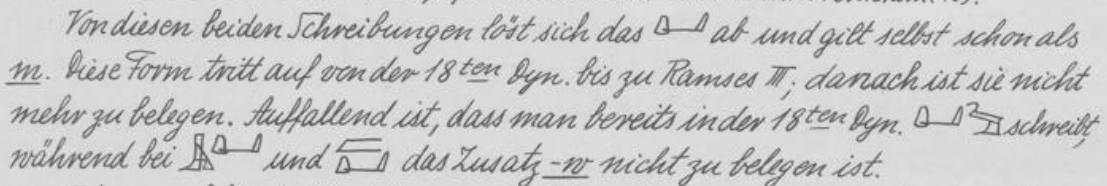 Von diesen beiden Schreibungen löst sich das ab und gilt selbst schon als
m. Diese Form tritt auf von der 18ten Dyn. bis zu Ramses III; danach ist sie nicht
mehr zu belegen. Auffallend ist, dass man bereits in der 18ten Dyn. schreibt,
während bei und das Zusatz -w nicht zu belegen ist.